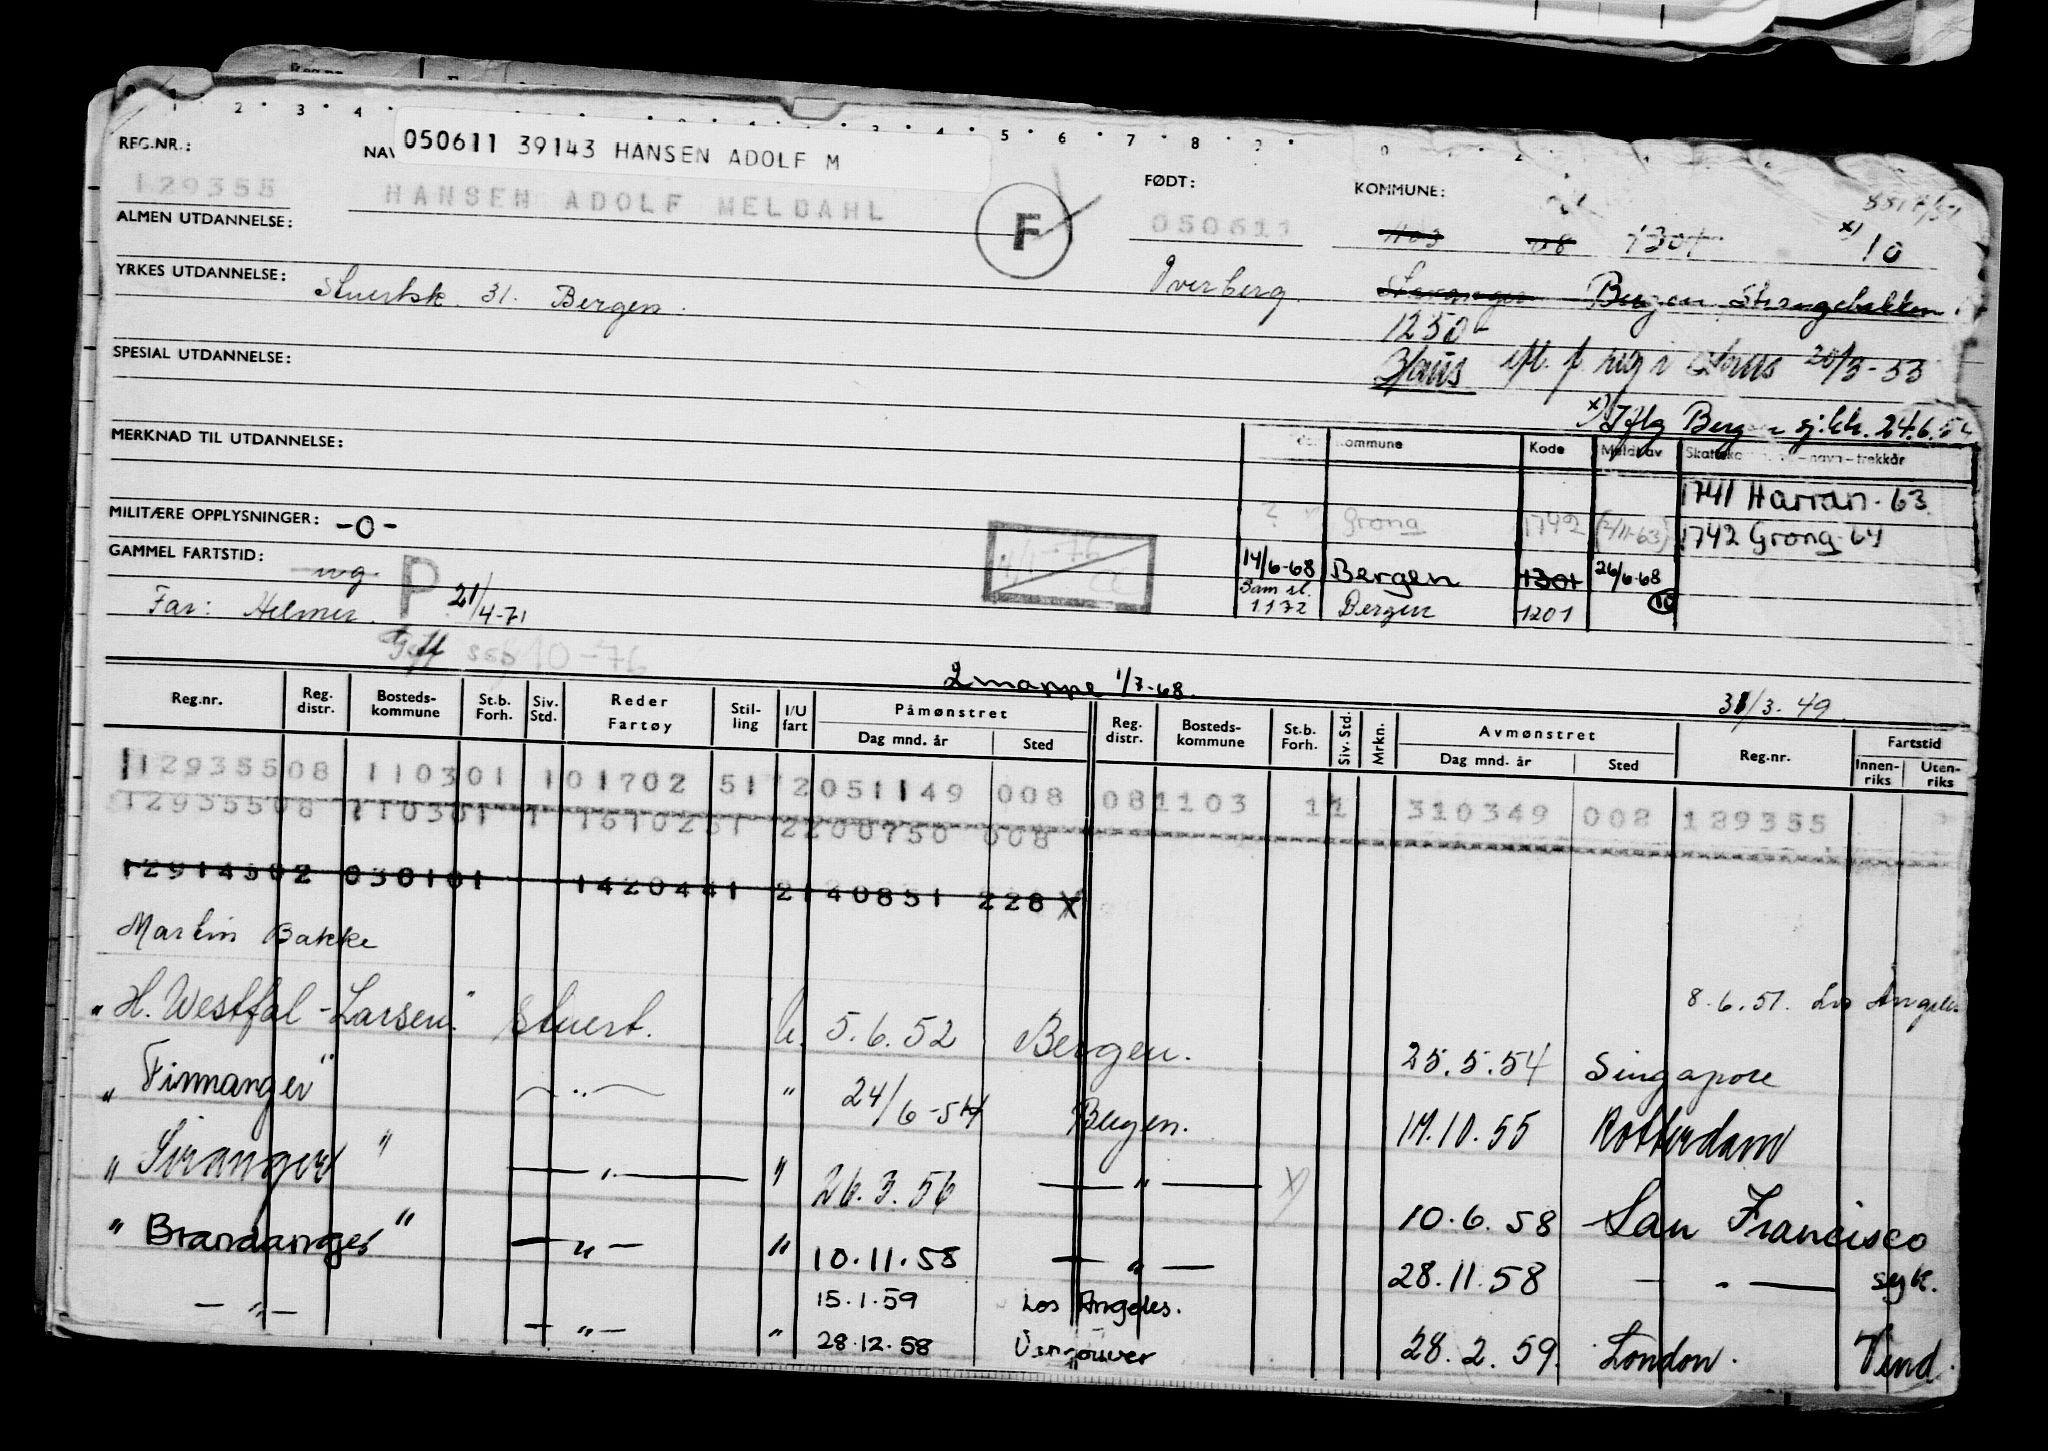 050611 39143 HANSEN ADOLF M
REG.NR.:
FØDT:
KOMMUNE:
129355
HANSEN ADOLF MELDAHL
F
050611
1103 08 1301 x) 10
ALMEN UTDANNELSE:
YRKES UTDANNELSE: Stuertsk. 31. Bergen.
Stavanger Bergen
1250-
Haus ifl. f. reg i Haus 20/3-53
SPESIAL UTDANNELSE:
x) Iflg Bergen sj.kk. 24.6.54
MERKNAD TIL UTDANNELSE:
Kommune Kode Meldt av navn - trekkår
1741 Harran - 63
MILITÆRE OPPLYSNINGER: -0-
? Grong 1742 (2/11-63) 1742 Grong - 64
GAMMEL FARTSTID:
P 21/4-71
14/6-68 Bergen 1301 26/6-68
Far: Helmer.
Sam sl. 1.1.72 Bergen 1201 10
10-76
2 mappe 1/7-68.
31/3.49.
Reg.nr. Reg. distr. Bosteds- kommune St.b. Forh. Siv. Std. Reder Fartøy Stil- ling I/U fart Påmønstret Dag mnd. år Sted Reg. distr. Bosteds- kommune St.b. Forh. Siv. Std. Mrkn. Avmønstret Dag mnd. år Sted Reg.nr. Fartstid Innen- riks Uten- riks
12935508 110301 1 01702 51 2051149 008 081103 11 310349 008 129355
12935508 110301 1 161025 1 2200750 008
12914502 030101 1420441 2140851 228 X
Martin Bakke
8.6.51. Los Angeles
"H. Westfal-Larsen" Stuert. U. 5.6.52 Bergen. 25.5.54 Singapore
"Finnanger" — " — " 24/6-54 Bergen. 19.10.55 Rotterdam
"Siranger" — " — " 26.3.56 — " — X) 10.6.58 San Francisco
"Brandanger" — " — " 10.11.58 — " — 28.11.58 — " — syk.
15.1.59 Los Angeles.
— " — — " — " 28.12.58 Vancouver 28.2.59. London. Vend.